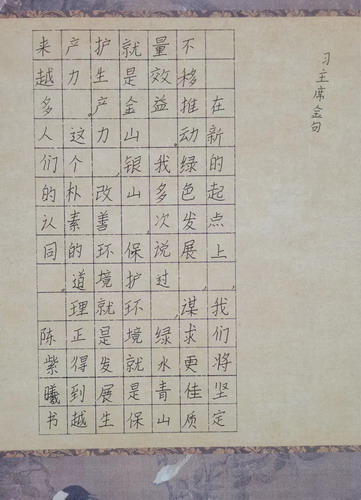 习主席金句
在新的起点上，我们将坚定
不移推动绿色发展，谋求更佳质
量效益。我多次说过，绿水青山
就是金山银山，保护环境就是保
护生产力，改善环境就是发展生
产力。这个朴素的道理正得到越
来越多人们的认同。 陈紫曦书